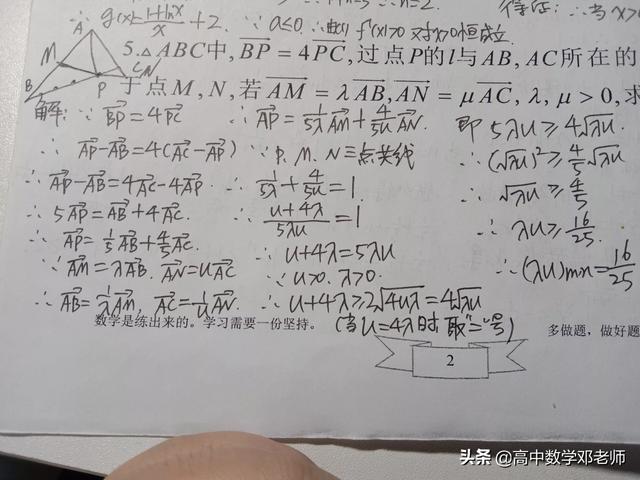 ∴ g'(x)=\frac{1+\ln x}{x}+2. ∵ a≤0. ∴ f'(x)>0 对x>0恒成立.
A
M
B
P
C N
5.△ABC中, \overrightarrow{BP} = 4\overrightarrow{PC}, 过点P的l与AB, AC所在的
于点M, N, 若 \overrightarrow{AM} = λ\overrightarrow{AB}, \overrightarrow{AN} = μ\overrightarrow{AC}, λ, μ > 0, 求
解: ∵ \overrightarrow{BP}=4\overrightarrow{PC}
∴ \overrightarrow{AP}-\overrightarrow{AB}=4(\overrightarrow{AC}-\overrightarrow{AP})
∴ \overrightarrow{AP}-\overrightarrow{AB}=4\overrightarrow{AC}-4\overrightarrow{AP}
∴ 5\overrightarrow{AP}=\overrightarrow{AB}+4\overrightarrow{AC}
∴ \overrightarrow{AP}=\frac{1}{5}\overrightarrow{AB}+\frac{4}{5}\overrightarrow{AC}.
∵ \overrightarrow{AM}=λ\overrightarrow{AB}. \overrightarrow{AN}=u\overrightarrow{AC}
∴ \overrightarrow{AB}=\frac{1}{λ}\overrightarrow{AM}, \overrightarrow{AC}=\frac{1}{u}\overrightarrow{AN}.
∴ \overrightarrow{AP}=\frac{1}{5λ}\overrightarrow{AM}+\frac{4}{5u}\overrightarrow{AN}.
∵ P. M. N三点共线
∴ \frac{1}{5λ}+\frac{4}{5u}=1.
∴ \frac{u+4λ}{5λu}=1
∴ u+4λ=5λu
∵ u>0. λ>0.
∴ u+4λ≥2\sqrt{4uλ}=4\sqrt{λu}
(当u=4λ时取"="号)
即 5λu≥4\sqrt{λu}.
∴ (\sqrt{λu})²≥\frac{4}{5}\sqrt{λu}
∴ \sqrt{λu}≥\frac{4}{5}
∴ λu≥\frac{16}{25}.
∴ (λu)min=\frac{16}{25}
数学是练出来的。学习需要一份坚持。
多做题，做好题
2
头条 @高中数学邓老师